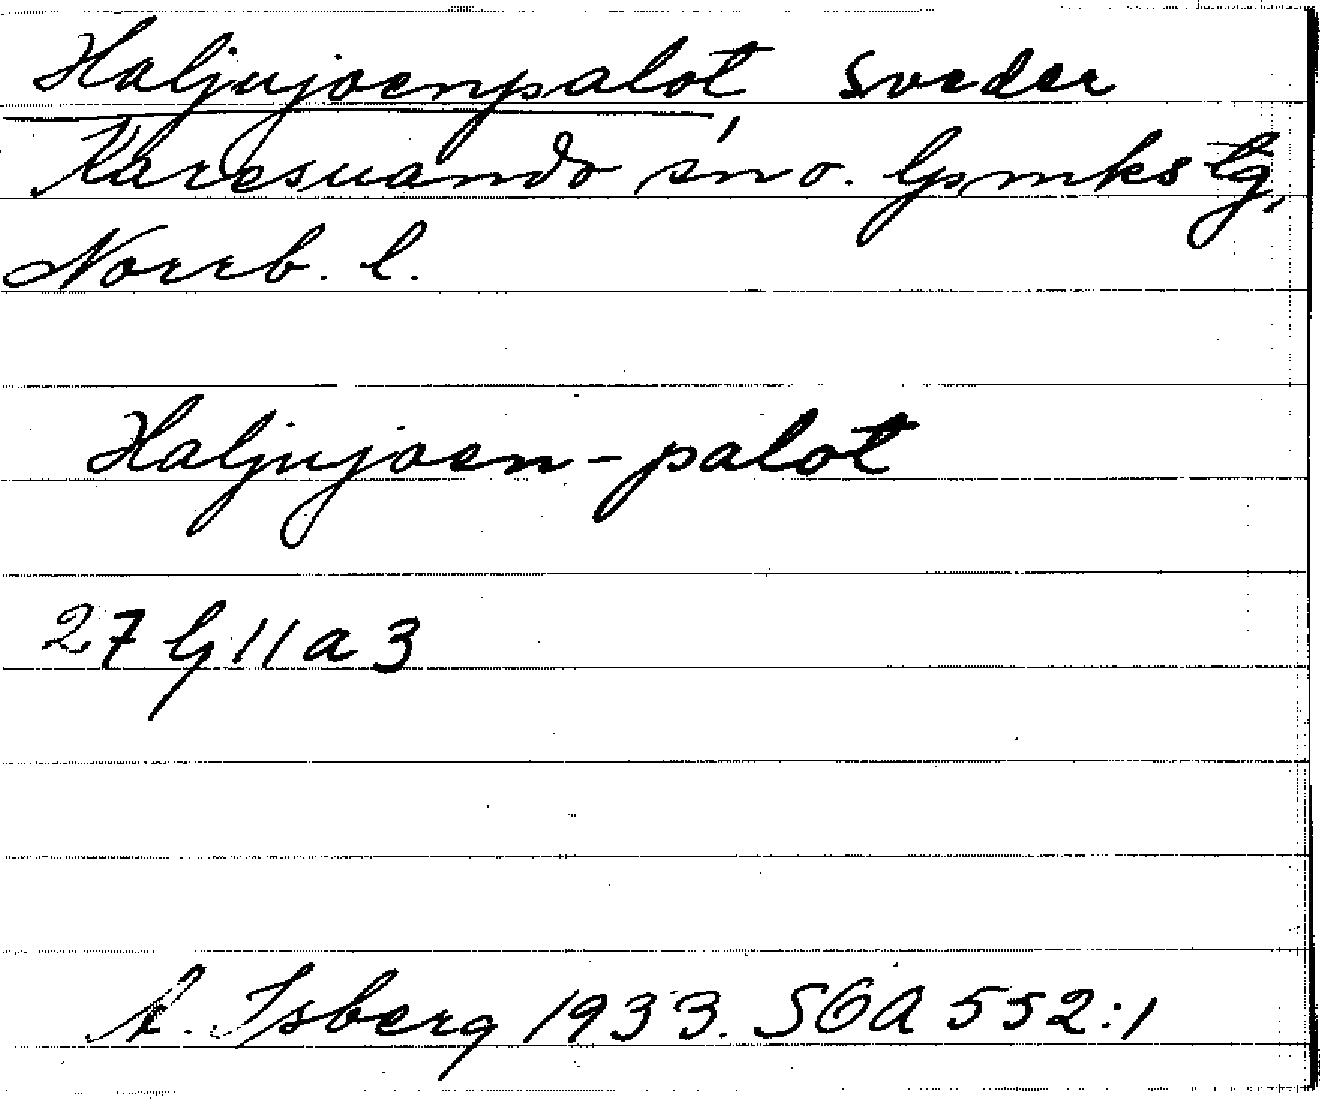 Haljujoenpalot, svedar
Karesuando sn o. lpmks tg,
Norrb. l.
Haljujoen-palot
27 G 11 a 3
A. Isberg 1933. SOA 552:1